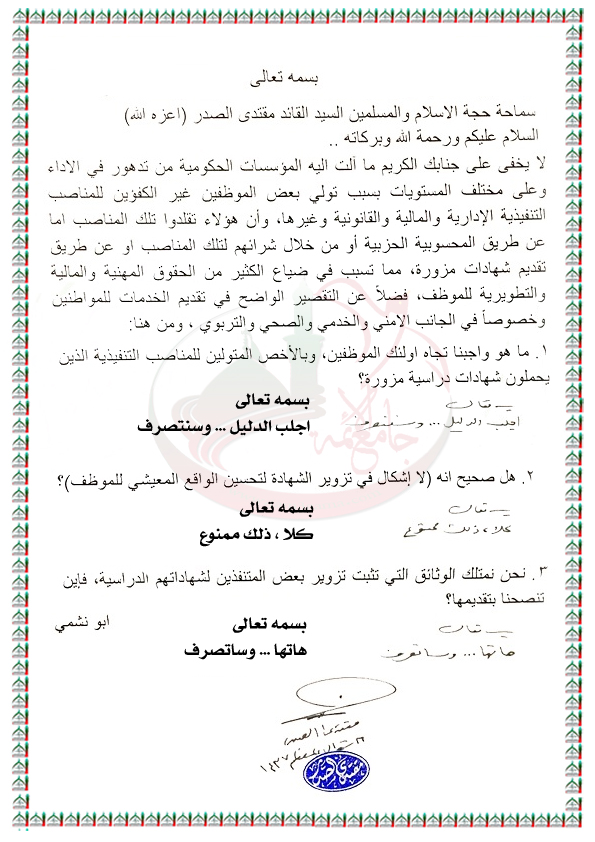 بسمه تعالى
سماحة حجة الاسلام والمسلمين السيد القائد مقتدى الصدر (اعزه الله)
السلام عليكم ورحمة الله وبركاته ..
لا يخفى على جنابك الكريم ما آلت اليه المؤسسات الحكومية من تدهور في الاداء
وعلى مختلف المستويات بسبب تولي بعض الموظفين غير الكفؤين للمناصب
التنفيذية الإدارية والمالية والقانونية وغيرها، وأن هؤلاء تقلدوا تلك المناصب اما
عن طريق المحسوبية الحزبية أو من خلال شرائهم لتلك المناصب او عن طريق
تقديم شهادات مزورة، مما تسبب في ضياع الكثير من الحقوق المهنية والمالية
والتطويرية للموظف، فضلاً عن التقصير الواضح في تقديم الخدمات للمواطنين
وخصوصاً في الجانب الامني والخدمي والصحي والتربوي ، ومن هنا:
١. ما هو واجبنا تجاه اولئك الموظفين، وبالأخص المتولين للمناصب التنفيذية الذين
يحملون شهادات دراسية مزورة؟
بسمه تعالى
بسمه تعالى
اجلب الدليل ... وسنتصرف
اجلب الدليل ... وسنتصرف
٢. هل صحيح انه (لا إشكال في تزوير الشهادة لتحسين الواقع المعيشي للموظف)؟
بسمه تعالى
بسمه تعالى
كلا ، ذلك ممنوع
كلا ، ذلك ممنوع
٣. نحن نمتلك الوثائق التي تثبت تزوير بعض المتنفذين لشهاداتهم الدراسية، فإين
تنصحنا بتقديمها؟
ابو نشمي
بسمه تعالى
بسمه تعالى
هاتها ... وساتصرف
هاتها ... وساتصرف
مقتدى الصدر
١٤٣٧